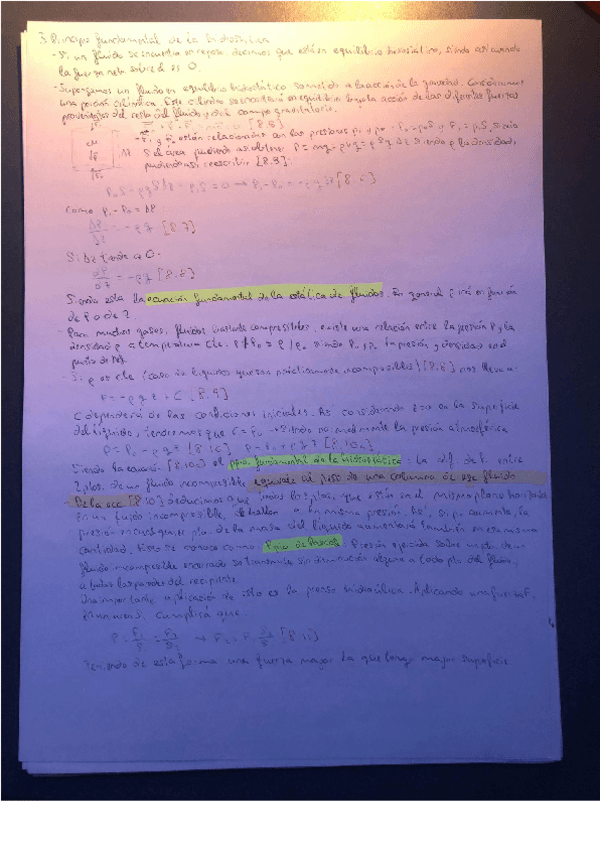 3. Principio fundamental de la hidrostática
- Si un fluido se encuentra en reposo decimos que está en equilibrio hidrostático, siendo así cuando
la fuerza neta sobre él es 0.
- Supongamos un fluido en equilibrio hidrostático sometido a la acción de la gravedad. Consideramos
una porción cilíndrica. Este cilindro se encontrará en equilibrio bajo la acción de las diferentes fuerzas
provenientes del resto del fluido y del campo gravitatorio.
[8.5]
están relacionadas con las presiones p₁ y p₀: F₀ = p₀S y F₁ = p₁S, siendo
S el área pudiendo así obtener P = mg = ρVg = ρS g Δz siendo ρ la densidad,
pudiendo así reescribir [8.5]:
P₁ - P₀ = -ρgΔz [8.6]
Como P₁ - P₀ = ΔP
ΔP/Δz = -ρg [8.7]
Si Δz tiende a 0.
dP/dz = -ρg [8.8]
Siendo esta la ecuación fundamental de la estática de fluidos. En general ρ irá en función
de P o de z.
Para muchos gases, fluidos bastante compresibles, existe una relación entre la presión P y la
densidad ρ a temperatura cte: P/P₀ = ρ/ρ₀ siendo P₀ y ρ₀ la presión y densidad en el
- Si ρ es cte (caso de líquidos que son prácticamente incompresibles) [8.8] nos lleva a:
P = -ρgz + C [8.9]
C dependerá de las condiciones iniciales. Así considerando z=0 en la superficie
del líquido, tendremos que C = P₀ → Siendo normalmente la presión atmosférica
P = P₀ - ρgz [8.10] P - P₀ = -ρgz [8.10a]
Siendo la ecuación [8.10a] el pno. fundamental de la hidrostática: La dif. de P. entre
2 ptos. de un fluido incompresible equivale al peso de una columna de ese fluido
De la ecc [8.10] deducimos que todos los ptos. que estén en el mismo plano horizontal
En un fluido incompresible, se hallan a la misma presión. Así, si p₀ aumenta, la
presión en cualquier pto. de la masa del líquido aumentará también en esa misma
cantidad. Esto se conoce como Pno. de Pascal: Presión ejercida sobre un pto. de un
fluido incompresible encerrado se transmite sin disminución alguna a todo pto. del fluido,
a todas las partes del recipiente.
Una importante aplicación de esto es la prensa hidráulica. Aplicando una fuerza F₁
cumplirá que:
P = F₁/S₁ = F₂/S₂ → F₂ = F₁ S₂/S₁ [8.11]
Teniendo de esta forma una fuerza mayor la que tenga mayor superficie